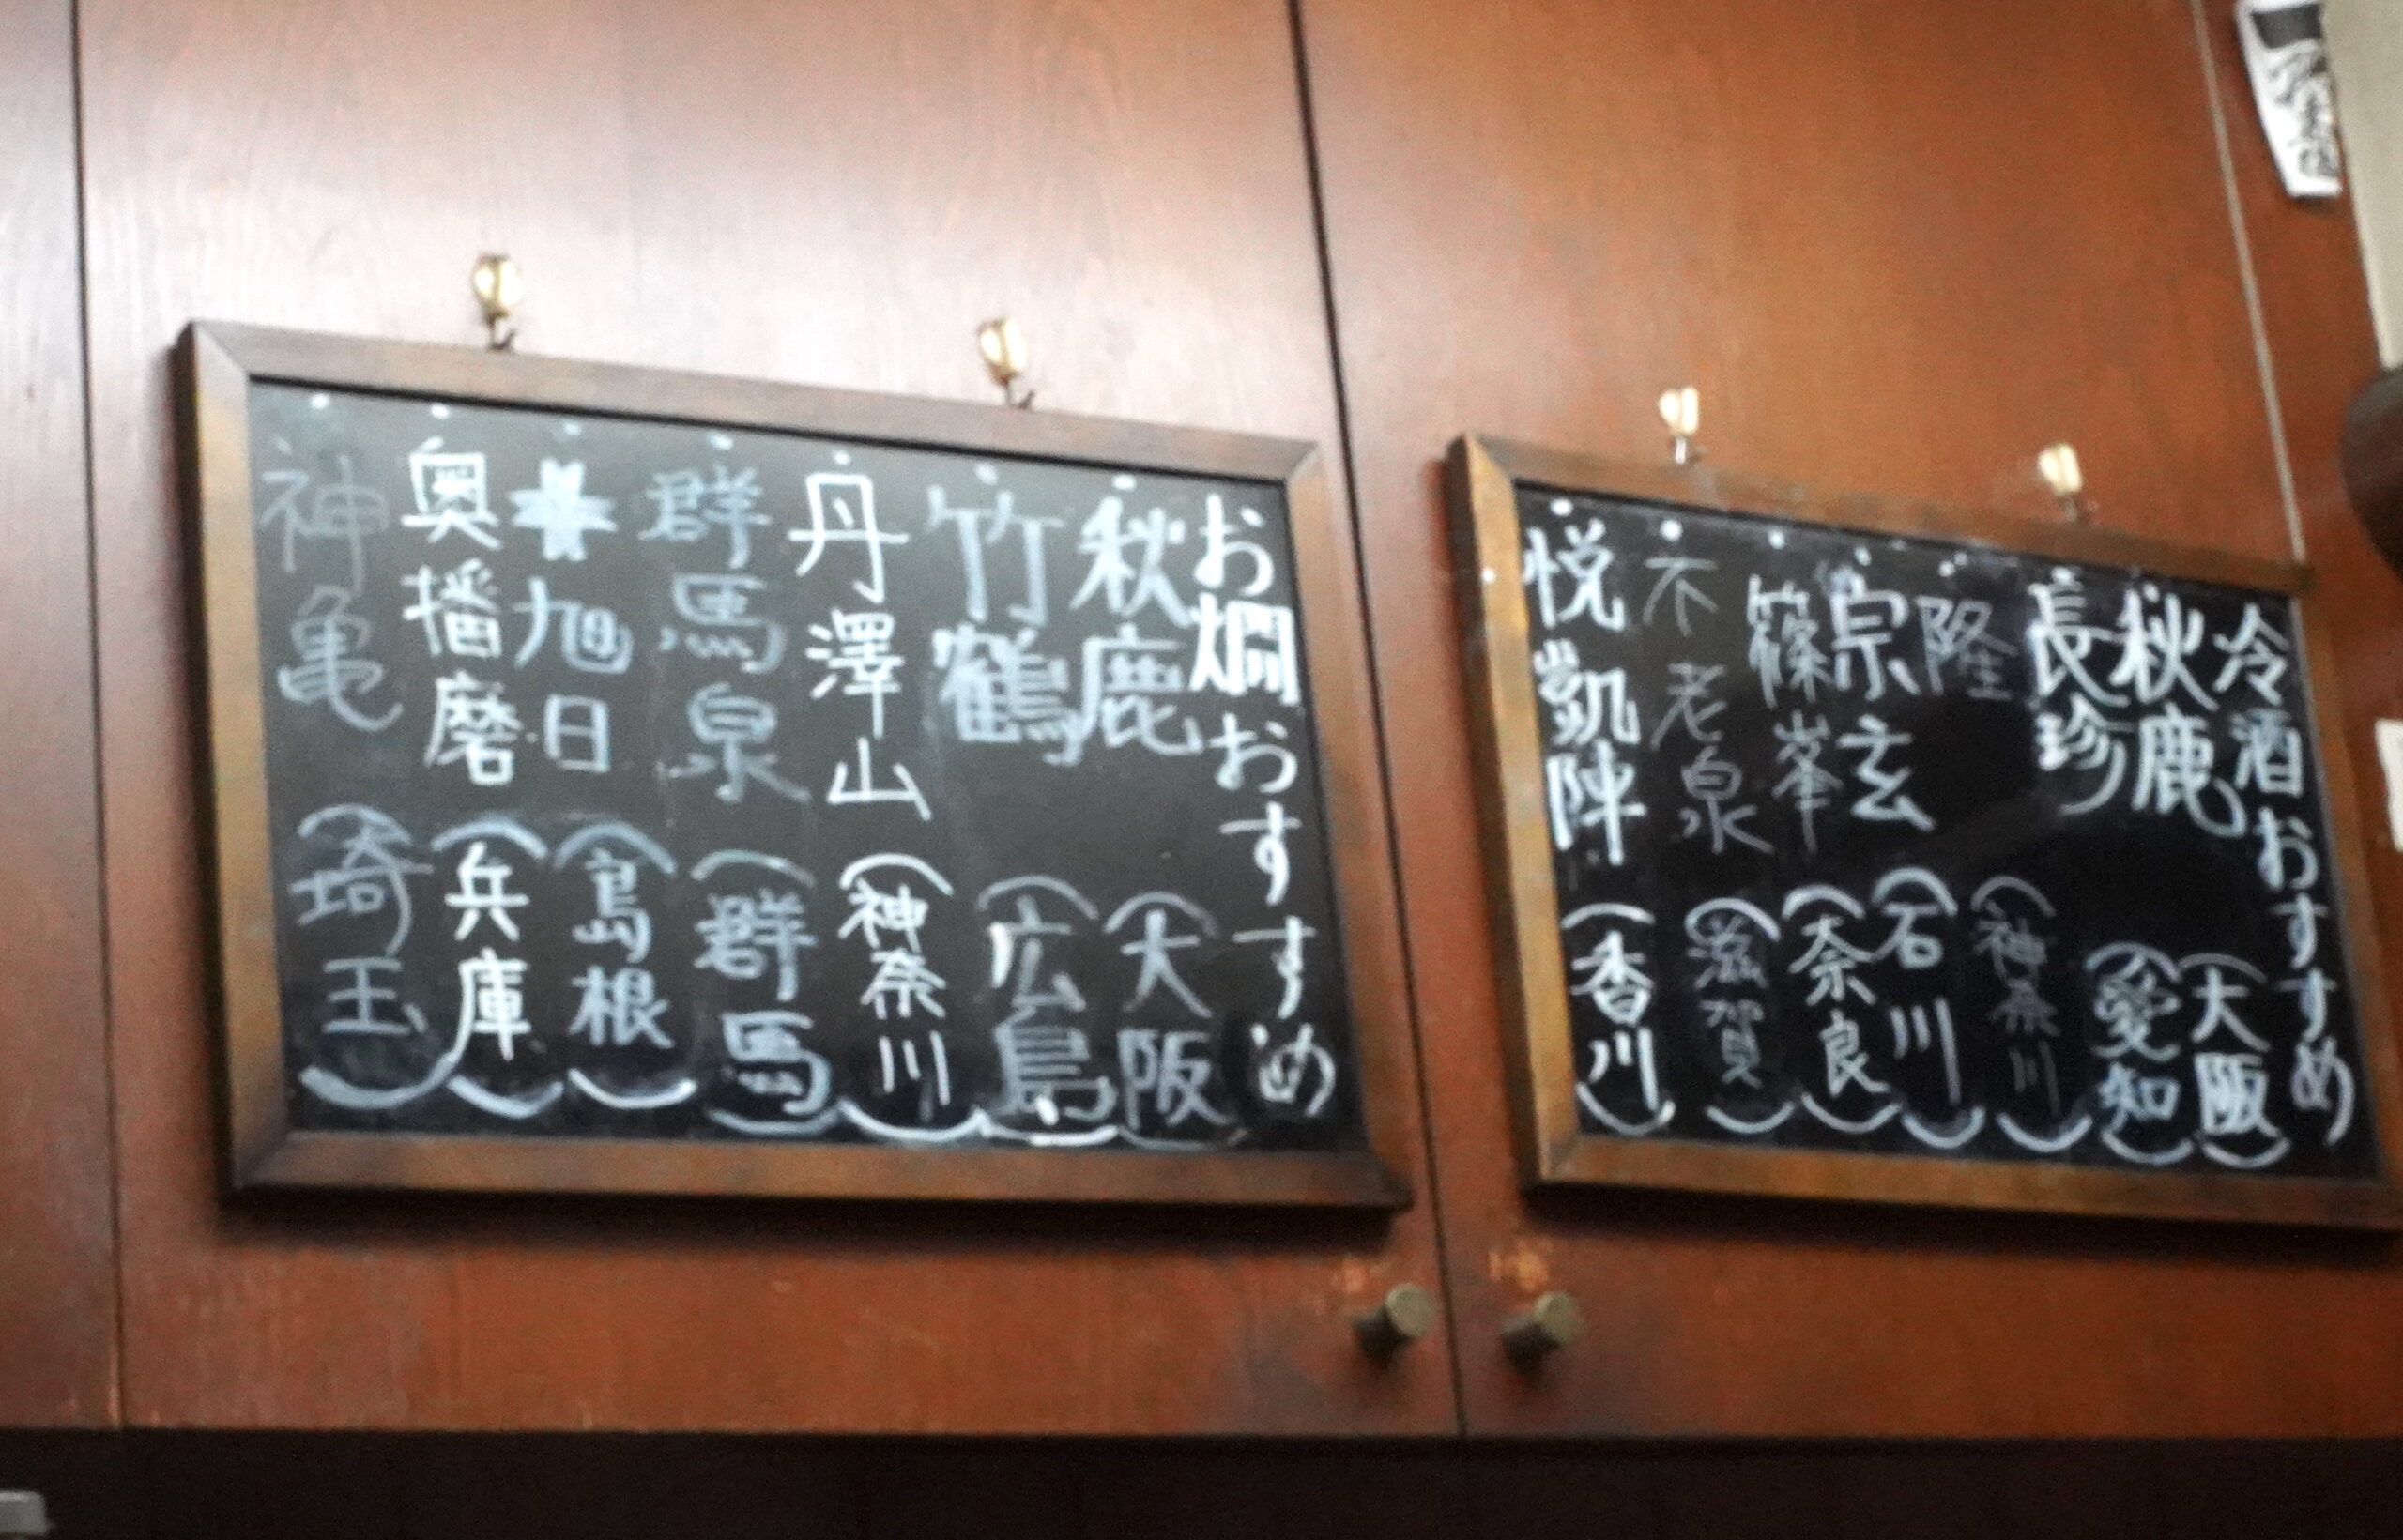 お燗おすすめ
秋鹿（大阪）
竹鶴（広島）
丹澤山（神奈川）
群馬泉（群馬）
十旭日（島根）
奥播磨（兵庫）
神亀（埼玉）
冷酒おすすめ
秋鹿（大阪）
長珍（愛知）
隆（神奈川）
宗玄（石川）
篠峯（奈良）
不老泉（滋賀）
悦凱陣（香川）